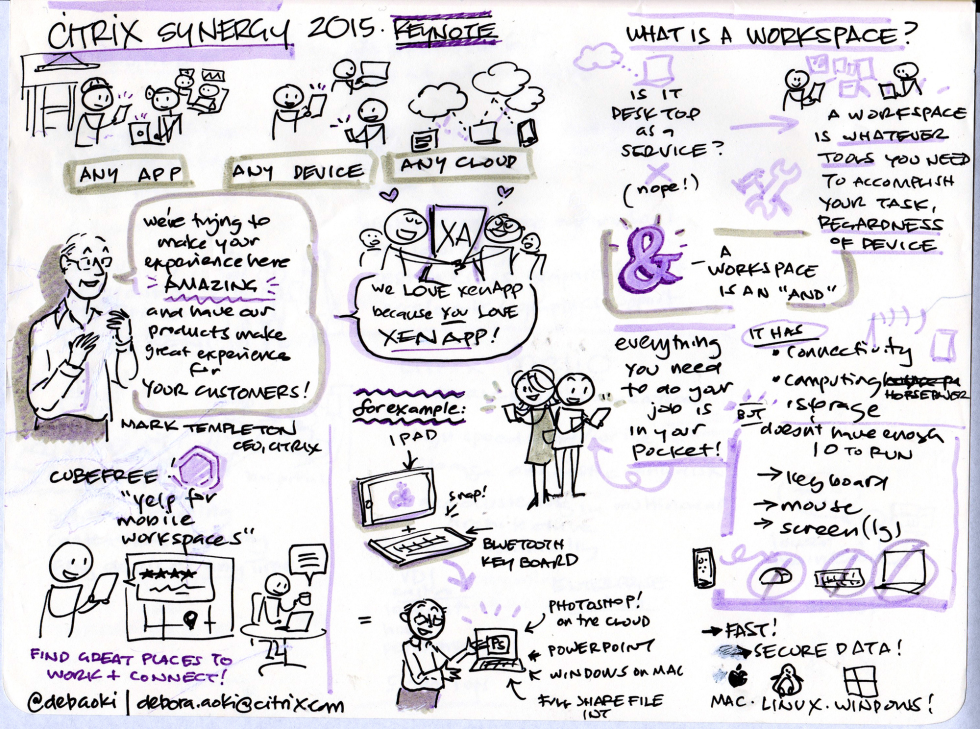 CITRIX SYNERGY 2015. KEYNOTE
ANY APP
ANY DEVICE
ANY CLOUD
we're trying to
make your
experience here
AMAZING
and have our
products make
great experience
for
YOUR CUSTOMERS!
MARK TEMPLETON
CEO, CITRIX
XA
we LOVE XenApp
because YOU LOVE
XENAPP!
CUBEFREE
"yelp for
mobile
workspaces"
★★★★
FIND GREAT PLACES TO
WORK + CONNECT!
@debaoki | debora.aoki@citrix.com
for example:
IPAD
&
snap!
+
BLUETOOTH
KEYBOARD
=
PS
PHOTOSHOP!
on the CLOUD
POWERPOINT
WINDOWS on MAC
FULL SHARE FILE
INT
WHAT IS A WORKSPACE?
IS IT
DESKTOP
as a
SERVICE?
(nope!)
A WORKSPACE
IS WHATEVER
TOOLS YOU NEED
TO ACCOMPLISH
YOUR TASK,
REGARDNESS
OF DEVICE
&
- A
WORKSPACE
IS AN "AND"
everything
you need
to do your
job is
in your
pocket!
IT HAS
• connectivity
• computing
HORSEPOWER
• storage
BUT
doesn't have enough
IO TO RUN
→ keyboard
→ mouse
→ screen (lg)
→ FAST!
→ SECURE DATA!
MAC · LINUX · WINDOWS!